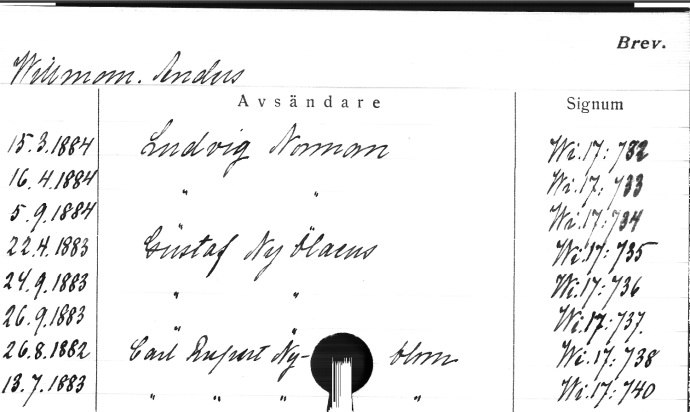 Brev.
Willman. Anders
Avsändare Signum
15.3.1884 Ludvig Norman Wi.17:732
16.4.1884 " " Wi.17:733
5.9.1884 Wi.17:734
22.4.1883 Gustaf Ny blaeus Wi.17:735
24.9.1883 " " Wi.17:736
26.9.1883 " " Wi.17:737.
26.8.1882 Carl Rupert Ny- blom Wi.17:738
13.7.1883 " " " " Wi.17:740